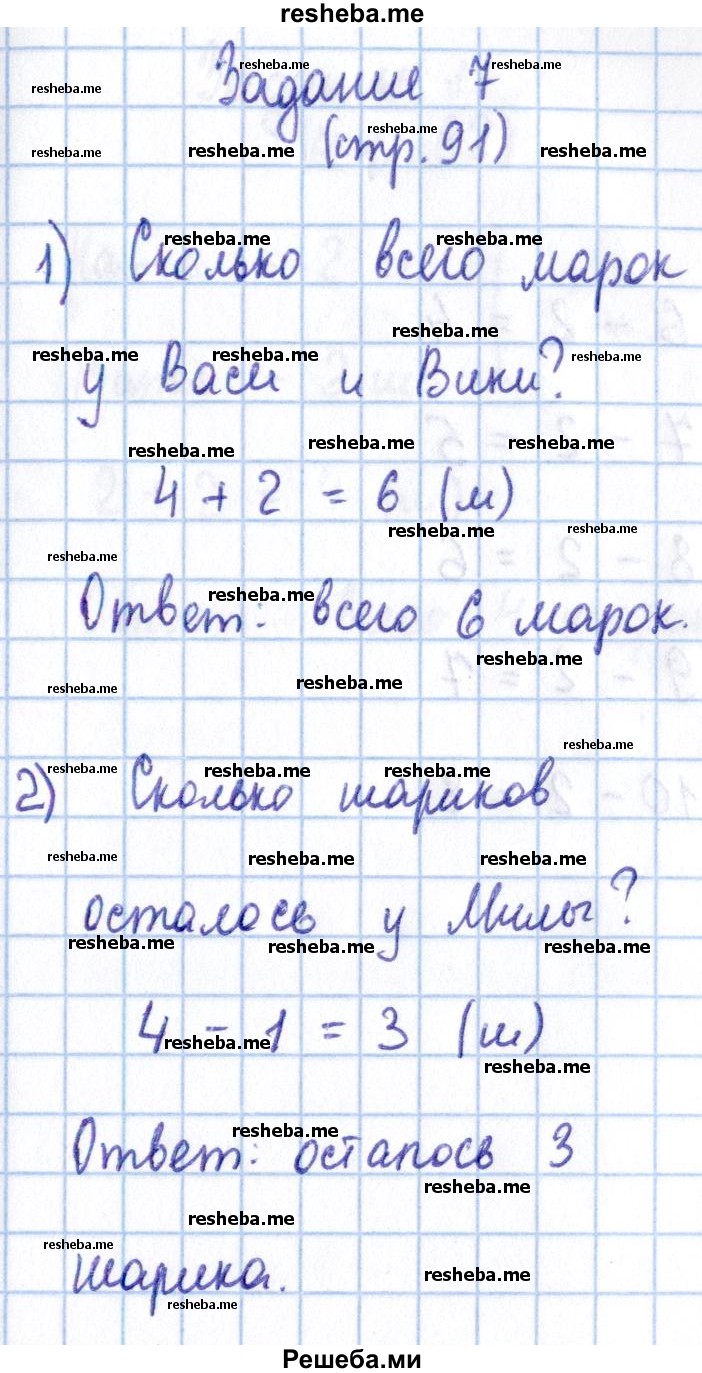 resheba.me
Задание 7
(стр. 91)
1) Сколько всего марок
у Васи и Вики?
4 + 2 = 6 (м)
Ответ: всего 6 марок.
2) Сколько шариков
осталось у Милы?
4 - 1 = 3 (ш)
Ответ: осталось 3
шарика.
Решеба.ми